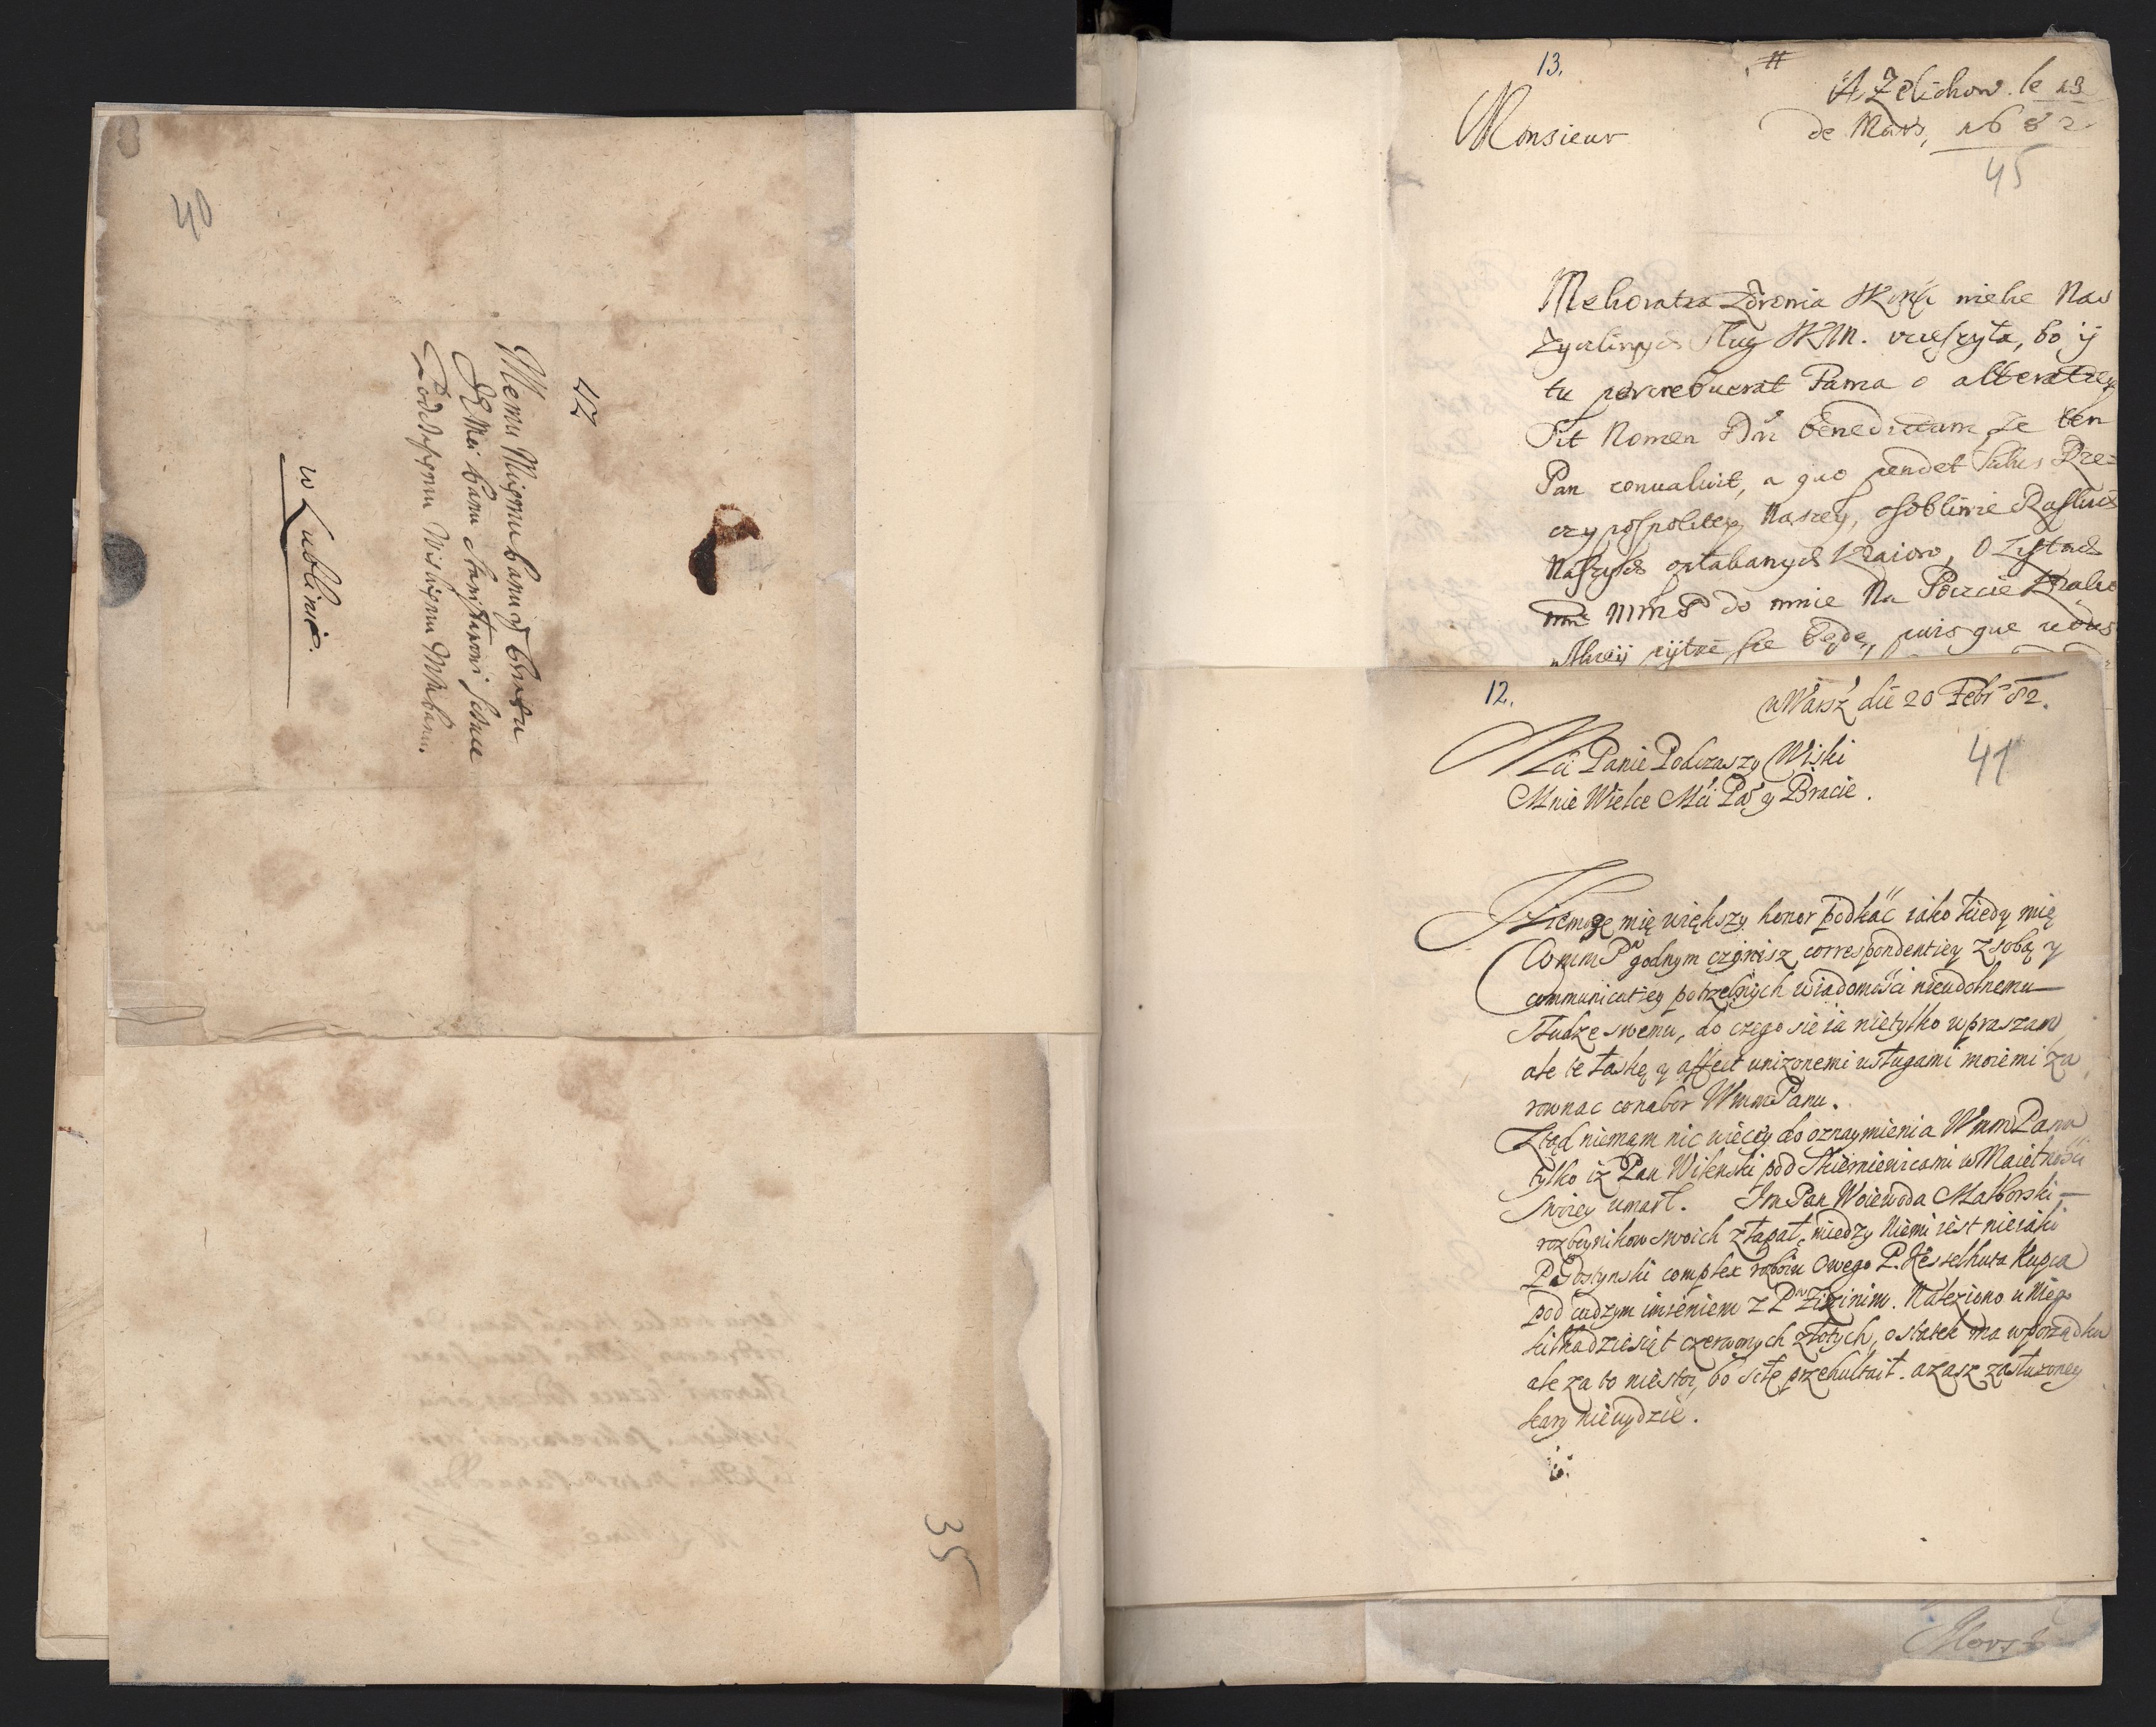 40
42
Memu Mipmu Panu y Bratu
JE Mci Panu
Podczaszemu Wiskiemu MMPanu.
w Lublinie.
35
13.
A Zelichow. le 13
de Mars, 1682
45
Monsieur
Zdrowia niehc Nas
Zyczliwych Slug vcieszyła, bo ij
tu percrebuerat Fama o alteratiey
Sit Nomen Dni benedictum, że ten
Pan convaluit, a quo pendet salus Rze=
czypospolitey Naszey, osobliwie
Naszych osłabanych Kraiow, O Listach
MMP do mnie Na Poczcie
się będę, puis que vous
12.
w Warsz die 20 Febr 82.
41
Mci Panie Podczaszy Wiski
Mnie Wielce Mci Pan y Bracie.
Niemoże mię większy honor podkać iako kiedy mię
WmmP godnym czynisz correspondentiey z sobą y
communicatiey potrzebnych wiadomości nieudolnemu
słudze swemu, do czego się ia nietylko wpraszam,
ale te łaskę y affect unizonemi usługami moiemi za
rownac conabor WmmPanu.
Ztąd niemam nic więcey do oznaymienia WmmPanu
tylko iż Pan Wilenski pod Skierniewicami w Maiętności
swoiey umarł. Im Pan Woiewoda Malborski
rozboynikow swoich złapał, między niemi iest nieiaki
P. Gostynski complex rozboiu owego P. Kesselhuta Kupca
pod cudzym imieniem z P. Naleziono u niego
kilkadziesiąt czerwonych złotych, ostatek ma w porządku
ale za to niestoi, bo siłę przehultait. azasz zasłużoney
kary nieuydzie.